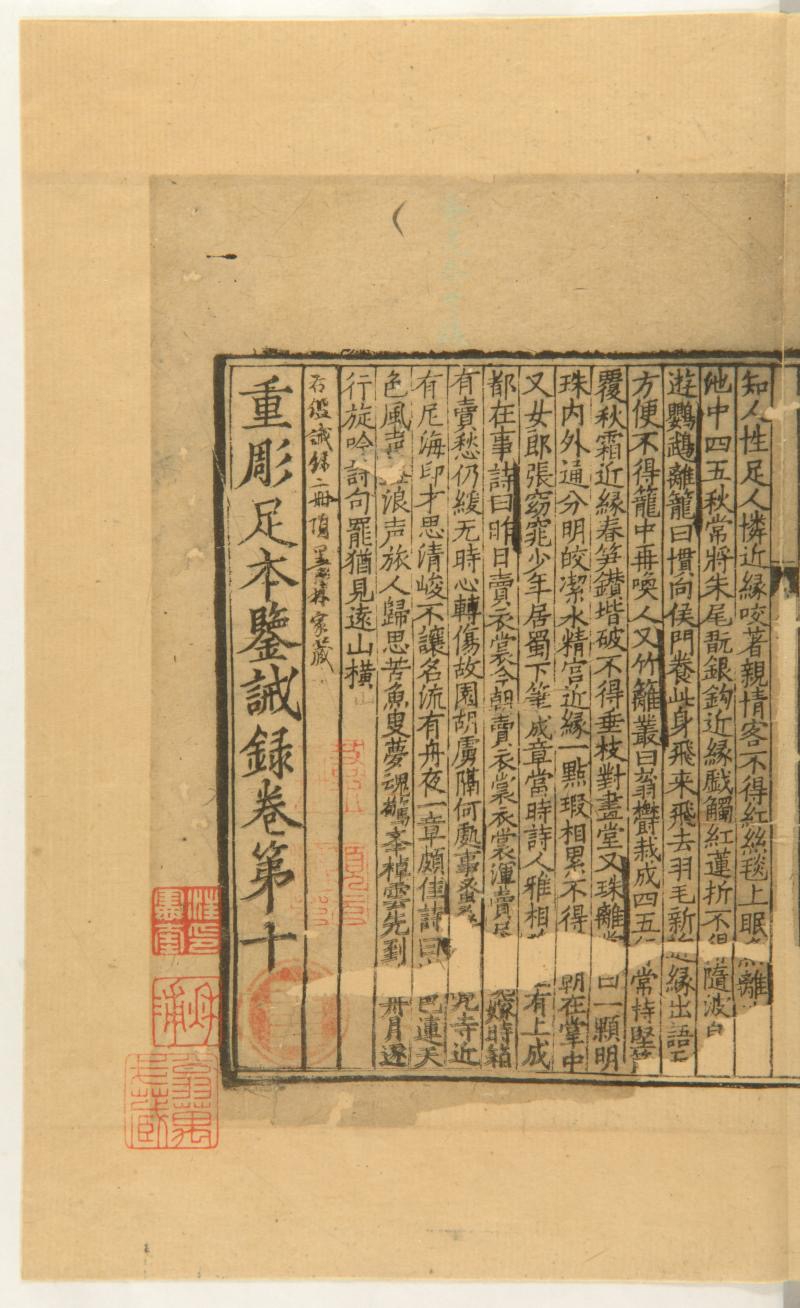 知人性足人憐近縁咬著親情客不得紅絲毯上眠 離
池中四五秋常將朱尾翫銀鉤近縁戲觸紅蓮折不 隨波
遊鸚鵡離籠曰慣向侯門養此身飛來飛去羽毛新 縁出語
方便不得籠中再喚人又竹離叢曰蓊欝栽成四五 常持堅
覆秋霜近縁春笋鑚堦破不得垂枝對畫堂又珠離 曰一顆明
珠内外通分明皎潔水精宫近縁一點瑕相累不得 在掌中
又女郎張窈窕少年居蜀下筆成章當時詩人雅相 有上成
都在事詩曰昨日賣衣裳今朝賣衣裳衣裳渾賣 嫁時箱
有賣愁仍緩无時心轉傷故園胡虜隔何處事蚕 尼寺近
有尼海印才思清峻不讓名流有舟夜一章頗佳詩曰 連天
色風声 浪声旅人歸思苦魚叟夢魂驚 棹雲先到 舟月逐
行旋吟詩句罷猶見遠山横
右鑑誡録二册項墨林家藏
重彫足本鑒誡録卷第十